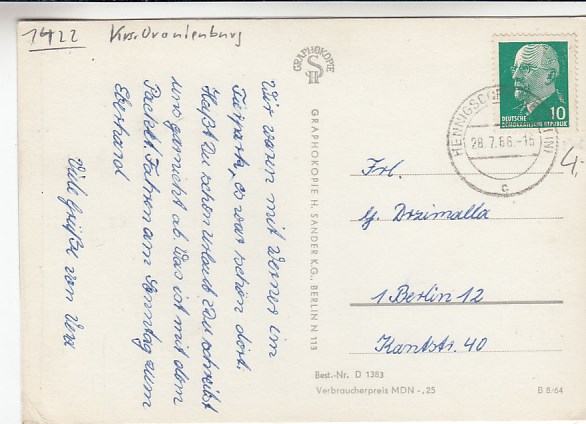 1422 Krs. Oranienburg
GRAPHOKOPIE
H S
Wir waren mit Werner im
Tierpark, es war schön dort.
Hast Du schon Urlaub? Du schreibst
uns garnicht ab. Was ist mit dem
Paket? Fahren am Sonntag zum
Eberhard
Viele Grüße von
GRAPHOKOPIE H. SANDER K.G., BERLIN N 113
10
DEUTSCHE
DEMOKRATISCHE REPUBLIK
HENNIGSDORF
28.7.66.-15
c
4,
Frl.
G. Drzimalla
1 Berlin 12
Kantstr. 40
Best.-Nr. D 1383
Verbraucherpreis MDN -,25
B 8/64